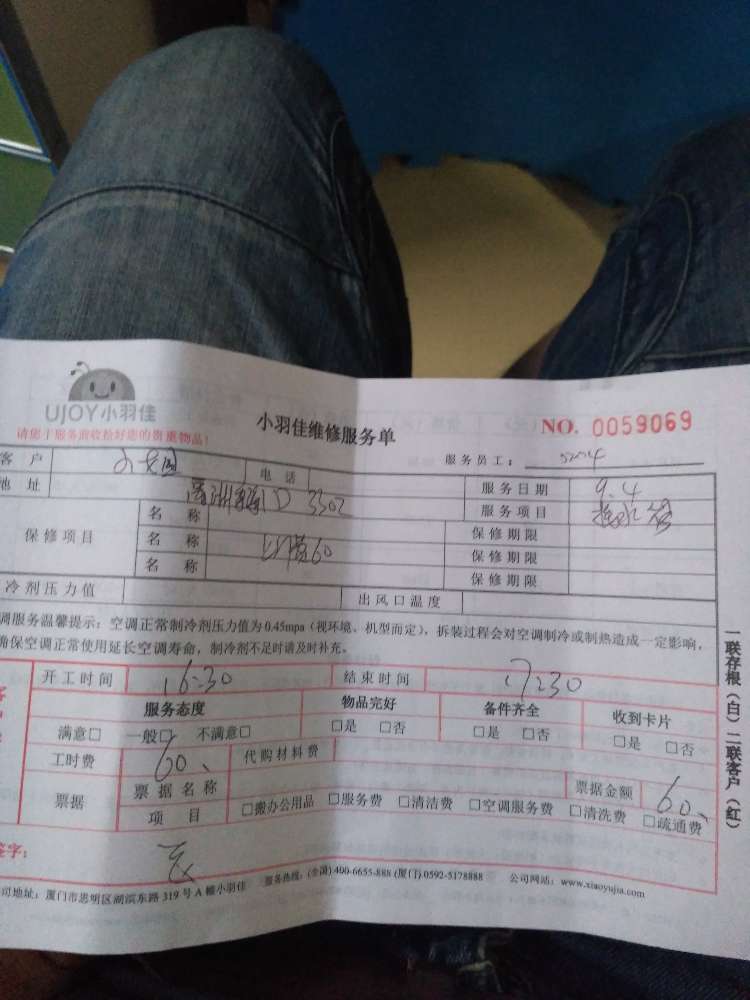 UJOY小羽佳
请您于服务前收拾好您的贵重物品!
小羽佳维修服务单
NO. 0059069
服务员工:
客 户
电 话
服务日期 9.4
地 址 D 3302
服务项目
保修项目
名 称
保修期限
名 称 60
保修期限
名 称
保修期限
冷剂压力值
出风口温度
调服务温馨提示:空调正常制冷剂压力值为0.45mpa(视环境、机型而定),拆装过程会对空调制冷或制热造成一定影响,
确保空调正常使用延长空调寿命,制冷剂不足时请及时补充。
开工时间 16:30 结束时间 17:30
服务态度 物品完好 备件齐全 收到卡片
满意□ 一般□ 不满意□ □是 □否 □是 □否 □是 □否
工时费 60、 代购材料费
票据 票据名称 票据金额 60、
项 目 □搬办公用品 □服务费 □清洁费 □空调服务费 □清洗费 □疏通费
签字:
司地址:厦门市思明区湖滨东路 319 号 A 幢小羽佳 服务热线:(全国) 400-6655-888 (厦门) 0592-5178888 公司网站:www.xiaoyujia.com
一联存根(白)二联客户(红)